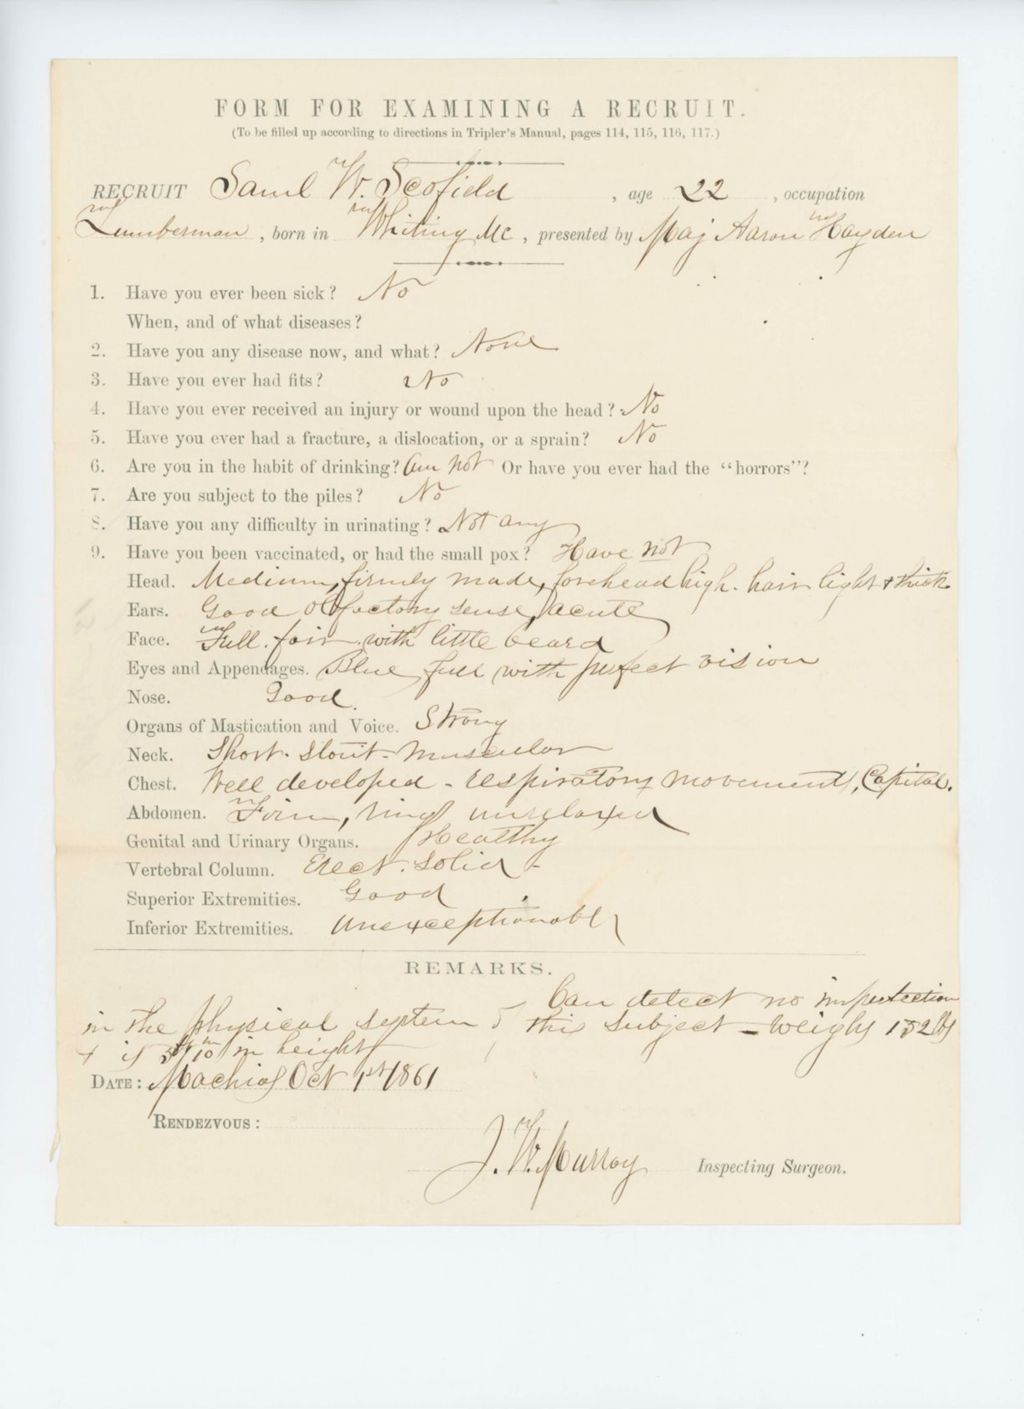 FORM FOR EXAMINING A RECRUIT.
(To be filled up according to directions in Tripler's Manual, pages 114, 115, 116, 117.)
RECRUIT Saml W. Scofield , age 22 , occupation
Lumberman , born in Whiting Me , presented by Maj Aaron Hayden
1. Have you ever been sick? No
When, and of what diseases?
2. Have you any disease now, and what? None
3. Have you ever had fits? No
4. Have you ever received an injury or wound upon the head? No
5. Have you ever had a fracture, a dislocation, or a sprain? No
6. Are you in the habit of drinking? Am not Or have you ever had the "horrors"?
7. Are you subject to the piles? No
8. Have you any difficulty in urinating? Not any
9. Have you been vaccinated, or had the small pox? Have not
Head. Medium, firmly made, forehead high. hair light & thick
Ears. Good olfactory sense, acute
Face. Full. fair. with little beard
Eyes and Appendages. Blue, full with perfect vision
Nose. Good.
Organs of Mastication and Voice. Strong
Neck. Short. Stout - muscular
Chest. Well developed - respiratory movements, Capital.
Abdomen. Firm, unrelaxed
Genital and Urinary Organs. Healthy
Vertebral Column. Erect. Solid -
Superior Extremities. Good
Inferior Extremities. Unexceptionable
REMARKS.
Can detect no imperfection
in the physical system of this Subject - weighs 152 lbs
& is 5 ft 10 in in height
DATE: Machias Oct 1st 1861
RENDEZVOUS:
J. W. Murray Inspecting Surgeon.